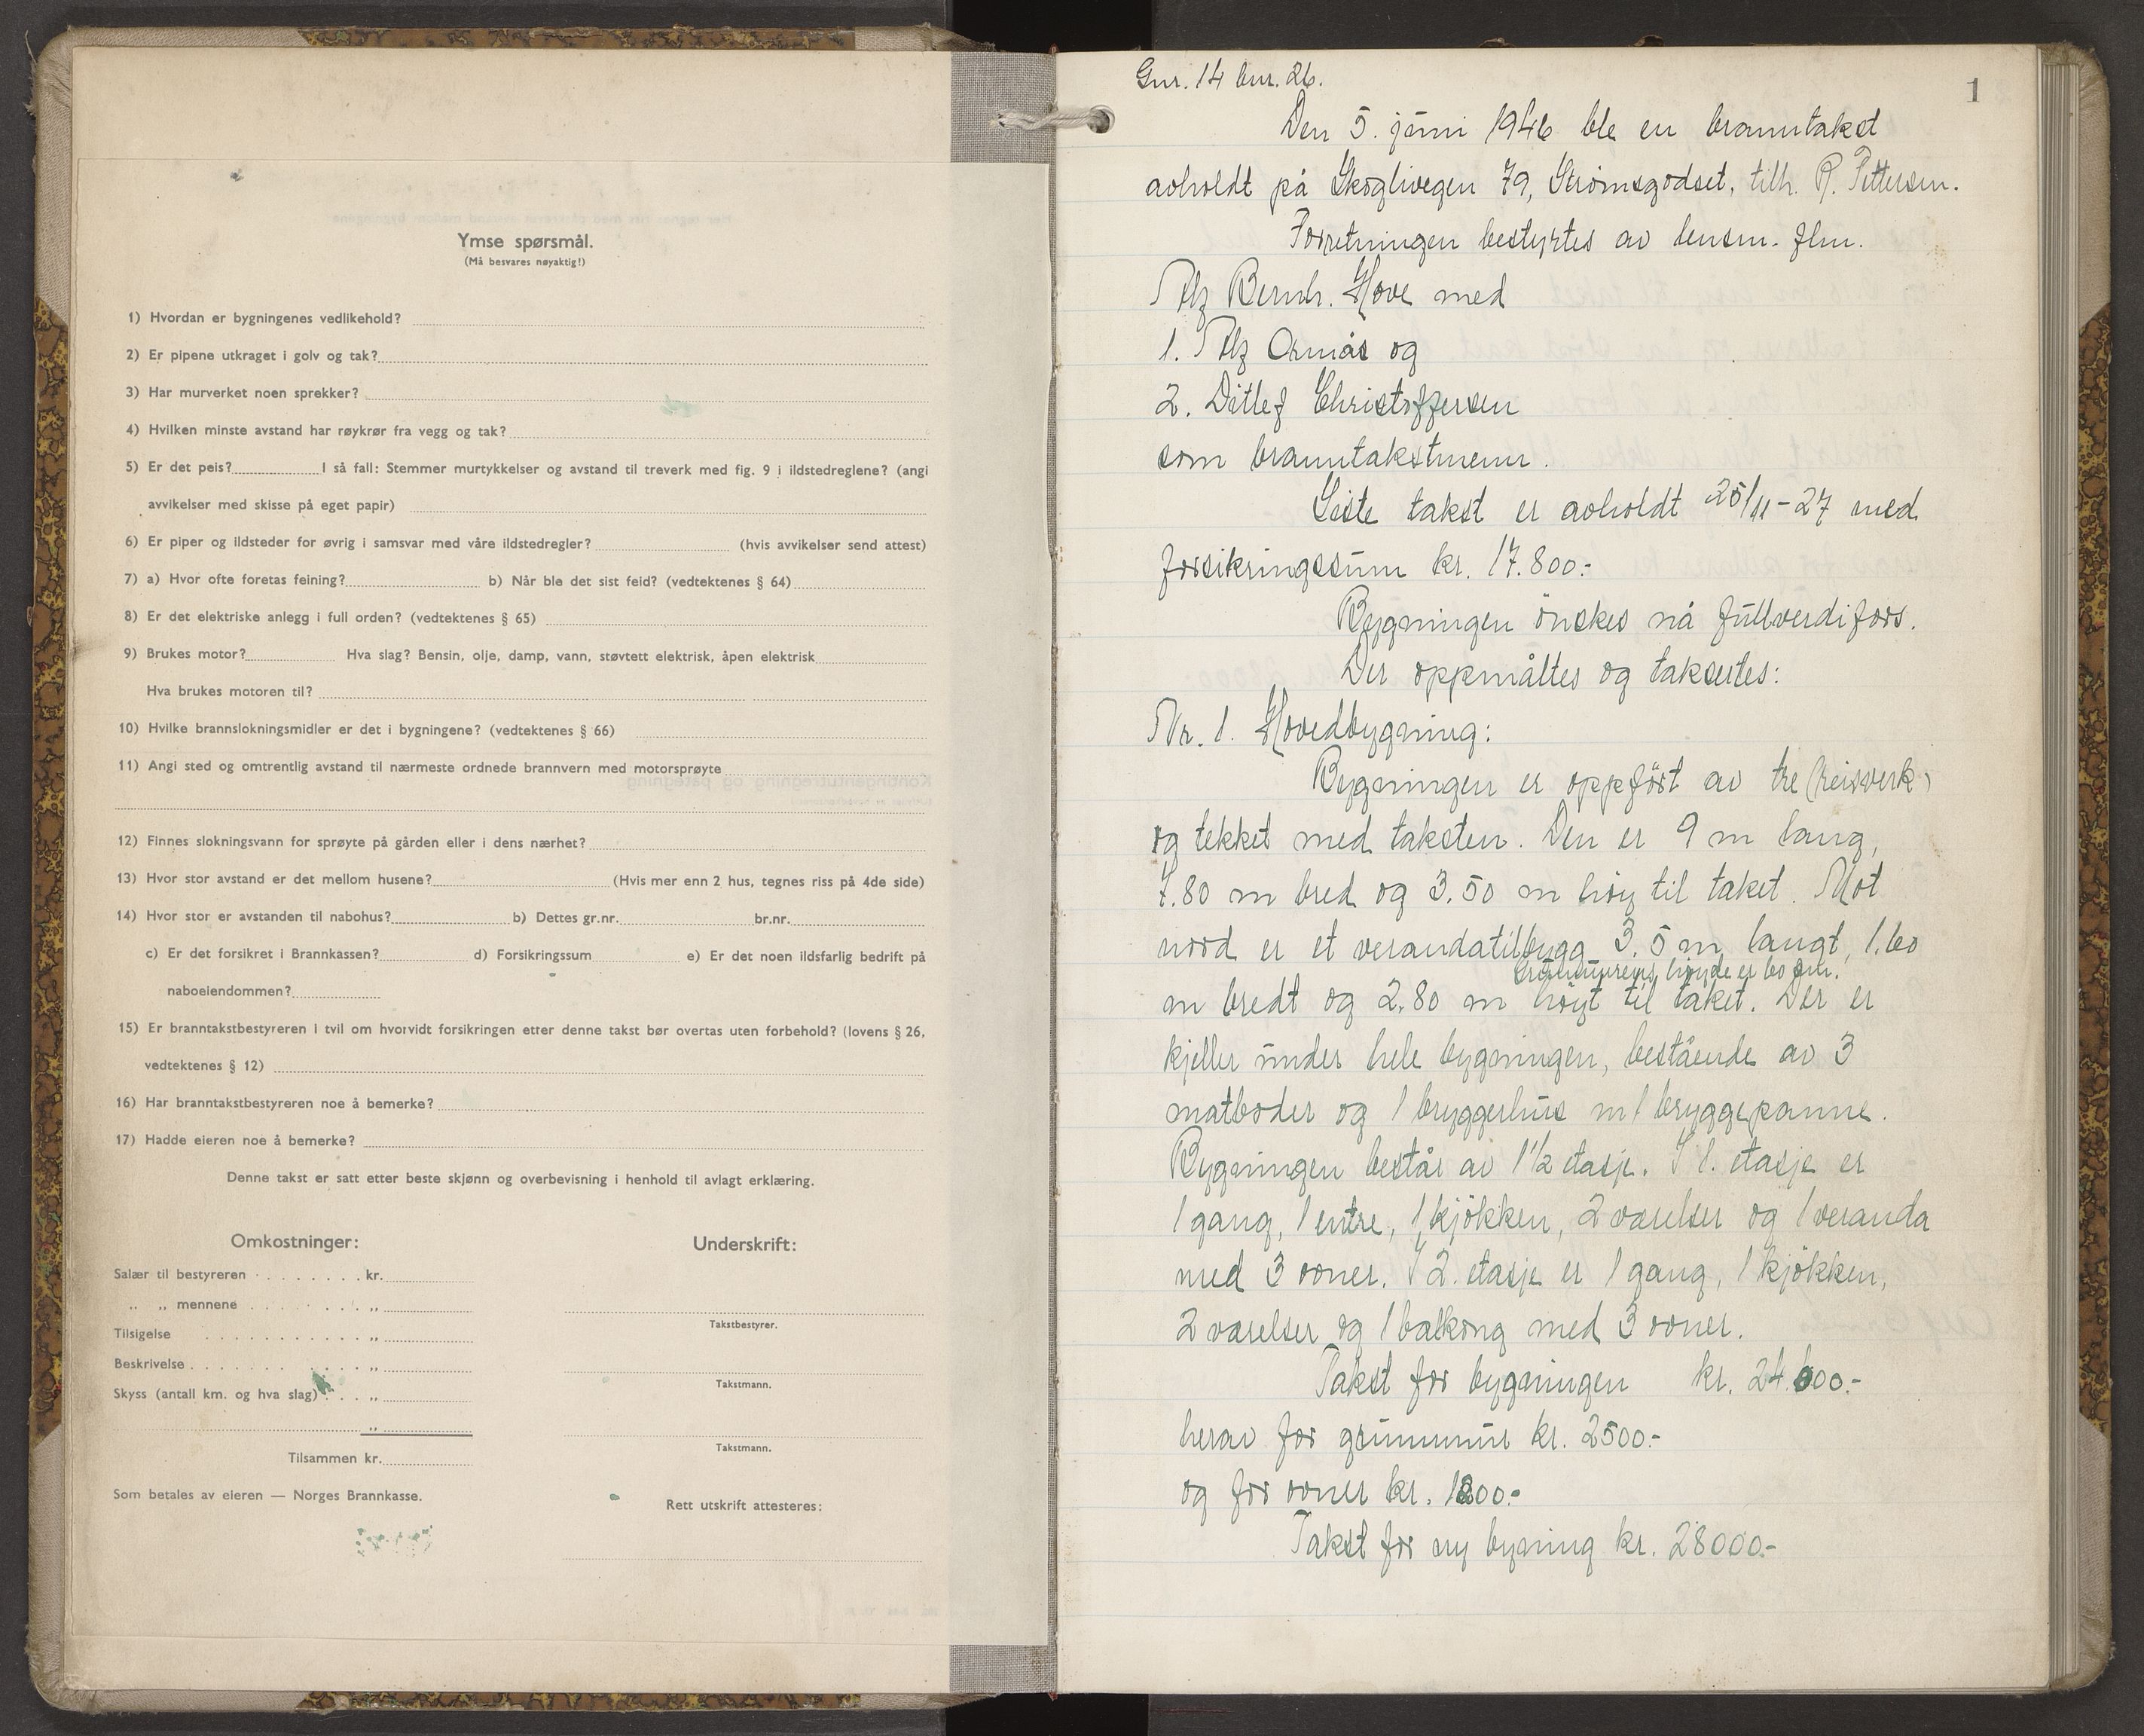 Ymse spørsmål.
(Må besvares nøyaktig!)
1) Hvordan er bygningenes vedlikehold?
2) Er pipene utkraget i golv og tak?
3) Har murverket noen sprekker?
4) Hvilken minste avstand har røykrør fra vegg og tak?
5) Er det peis? I så fall: Stemmer murtykkelser og avstand til treverk med fig. 9 i ildstedreglene? (angi
avvikelser med skisse på eget papir)
6) Er piper og ildsteder for øvrig i samsvar med våre ildstedregler? (hvis avvikelser send attest)
7) a) Hvor ofte foretas feining? b) Når ble det sist feid? (vedtektenes § 64)
8) Er det elektriske anlegg i full orden? (vedtektenes § 65)
9) Brukes motor? Hva slag? Bensin, olje, damp, vann, støvtett elektrisk, åpen elektrisk
Hva brukes motoren til?
10) Hvilke brannslokningsmidler er det i bygningene? (vedtektenes § 66)
11) Angi sted og omtrentlig avstand til nærmeste ordnede brannvern med motorsprøyte
12) Finnes slokningsvann for sprøyte på gården eller i dens nærhet?
13) Hvor stor avstand er det mellom husene? (Hvis mer enn 2 hus, tegnes riss på 4de side)
14) Hvor stor er avstanden til nabohus? b) Dettes gr.nr. br.nr.
c) Er det forsikret i Brannkassen? d) Forsikringssum e) Er det noen ildsfarlig bedrift på
naboeiendommen?
15) Er branntakstbestyreren i tvil om hvorvidt forsikringen etter denne takst bør overtas uten forbehold? (lovens § 26,
vedtektenes § 12)
16) Har branntakstbestyreren noe å bemerke?
17) Hadde eieren noe å bemerke?
Denne takst er satt etter beste skjønn og overbevisning i henhold til avlagt erklæring.
Omkostninger:
Salær til bestyreren . . . . . . . . kr.
„ „ mennene . . . . . . . . „
Tilsigelse . . . . . . . . . . . . „
Beskrivelse . . . . . . . . . . . „
Skyss (antall km. og hva slag) . . . „
„
Tilsammen kr.
Som betales av eieren — Norges Brannkasse.
Underskrift:
Takstbestyrer.
Takstmann.
Takstmann.
Rett utskrift attesteres:
1
Gnr. 14 bnr. 26.
Den 5. juni 1946 ble en branntakst
avholdt på Skoglivegen 79, Strømsgodset, tilh. R. Pettersen.
Forretningen bestyrtes av lensm. flm.
Bernh. Hove med
1. Ornås og
2. Ditlef Christoffersen
som branntakstmenn.
Siste takst er avholdt 25/11-27 med
forsikringssum kr. 17.800:-
Bygningen ønskes nå fullverdifors.
Der oppmåltes og takseertes:
Nr. 1. Hovedbygning:
Bygningen er oppført av tre (reisverk)
og tekket med taksten. Den er 9 m lang,
7.80 m bred og 3.50 m høy til taket. Mot
nord er et verandatilbygg 3.5 m langt, 1.60
Grunnmurens høyde er 60 cm.
m bredt og 2.80 m høyt til taket. Der er
kjeller under hele bygningen, bestående av 3
matboder og 1 bryggerhus m/ 1 bryggepanne.
Bygningen består av 1½ etasje. I 1. etasje er
1 gang, 1 entre, 1 kjøkken, 2 værelser og 1 veranda
med 3 ovner. I 2. etasje er 1 gang, 1 kjøkken,
2 værelser og 1 balkong med 3 ovner.
Takst for bygningen kr. 24.600.-
herav for grunnmur kr. 2500.-
og for ovner kr. 1200:-
Takst for ny bygning kr. 28000.-